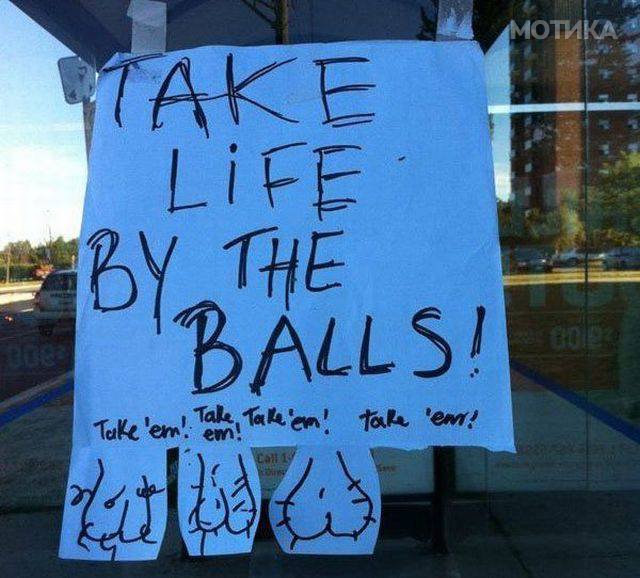 МОТИКА
TAKE
LiFE
BY THE
BALLS!
Take 'em! Take 'em! Take 'em! take 'em!
Call 1-